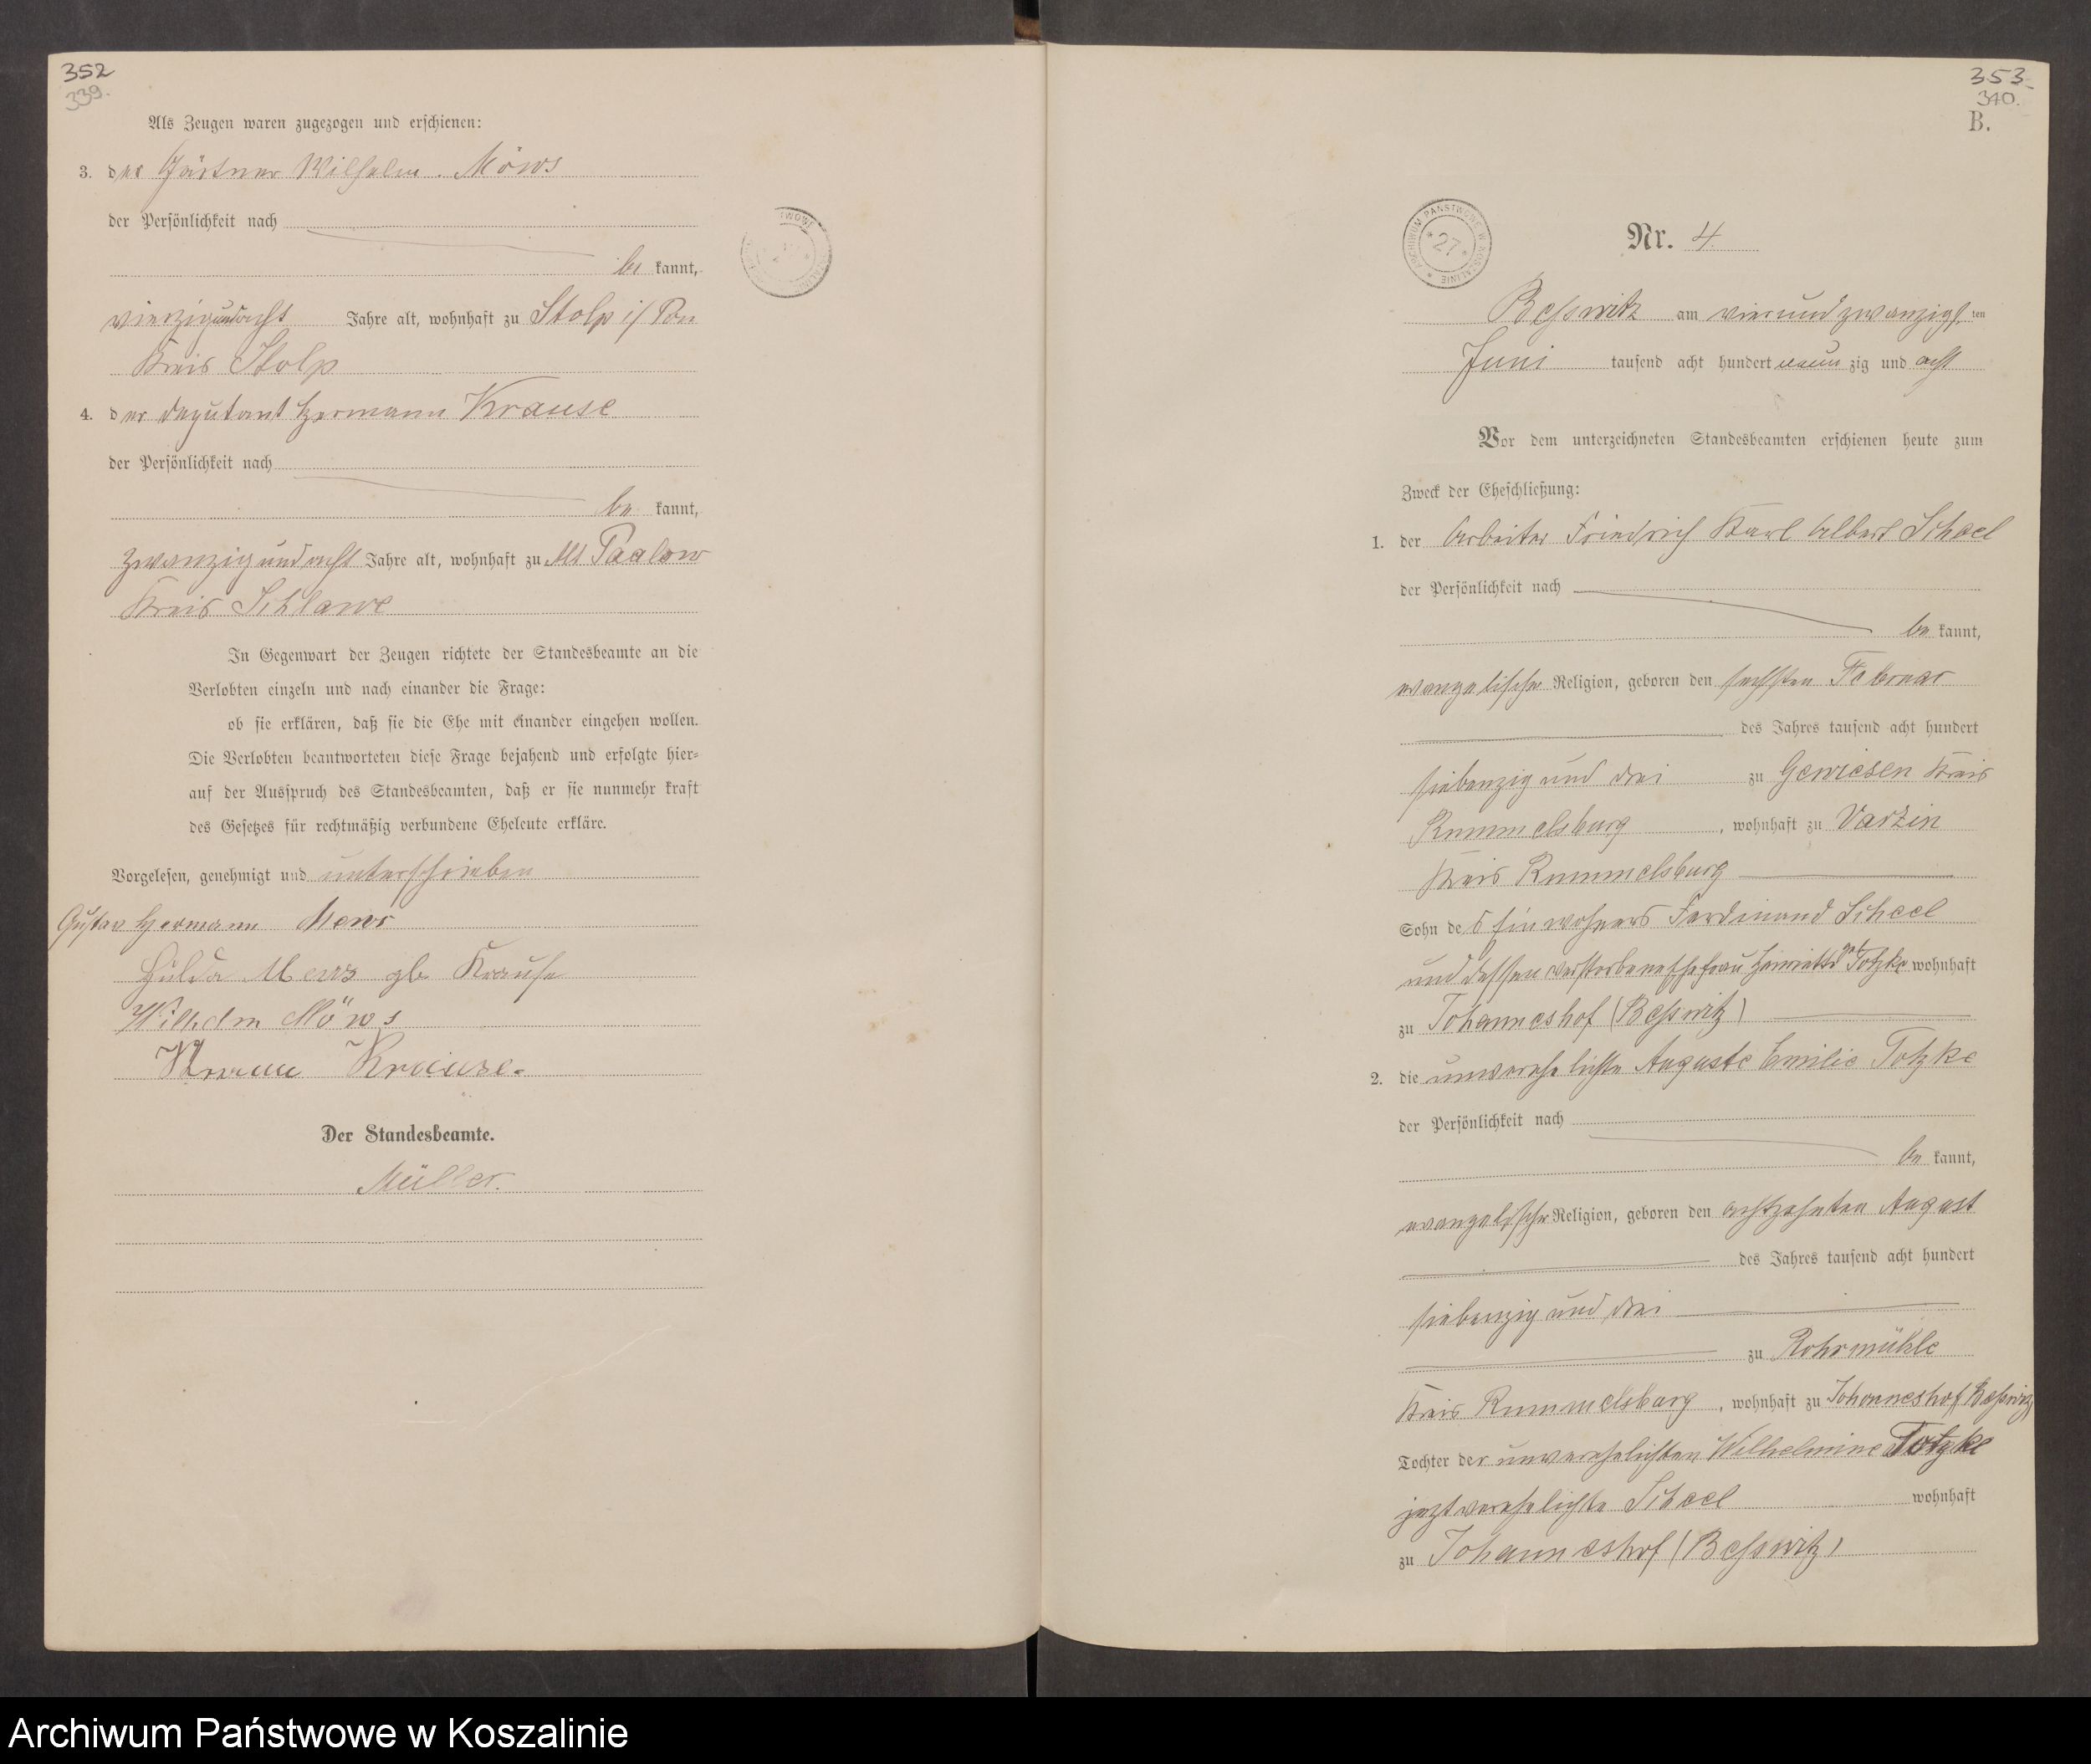 352
339.
Als Zeugen waren zugezogen und erschienen:
3. der Gärtner Wilhelm Möws
der Persönlichkeit nach
be kannt,
vierzigundacht Jahre alt, wohnhaft zu Stolp i/ Pom
Kreis Stolp
4. der Deputant Hermann Krause
der Persönlichkeit nach
be kannt,
zwanzigundacht Jahre alt, wohnhaft zu Alt Paalow
Kreis Schlawe
In Gegenwart der Zeugen richtete der Standesbeamte an die
Verlobten einzeln und nach einander die Frage:
ob sie erklären, daß sie die Ehe mit einander eingehen wollen.
Die Verlobten beantworteten diese Frage bejahend und erfolgte hier-
auf der Ausspruch des Standesbeamten, daß er sie nunmehr kraft
des Gesetzes für rechtmäßig verbundene Eheleute erkläre.
Vorgelesen, genehmigt und unterschrieben
Gustav Hermann Mews
Hulda Mews gb Krause
Wilhelm Möws
Krause.
Der Standesbeamte.
Müller.
353
340.
B.
ARCHIWUM PAŃSTWOWE W KOSZALINIE
* 27 *
Nr. 4.
Beßwitz am vierundzwanzigsten
Juni tausend acht hundert neun zig und acht
Vor dem unterzeichneten Standesbeamten erschienen heute zum
Zweck der Eheschließung:
1. der Arbeiter Friedrich Karl Albert Scheel
der Persönlichkeit nach
be kannt,
evangelischer Religion, geboren den sechsten Februar
des Jahres tausend acht hundert
siebenzig und drei zu Gewiesen Kreis
Rummelsburg, wohnhaft zu Varzin
Kreis Rummelsburg
Sohn des Einwohners Ferdinand Scheel
und dessen verstorbene Ehefrau Henriette geb Totzke wohnhaft
zu Johanneshof (Beßwitz)
2. die unverehelichte Auguste Emilie Totzke
der Persönlichkeit nach
be kannt,
evangelischer Religion, geboren den achtzehnten August
des Jahres tausend acht hundert
siebenzig und drei
zu Rohrmühle
Kreis Rummelsburg, wohnhaft zu Johanneshof Beßwitz
Tochter der unverehelichten Wilhelmine Totzke
jezt verehelichte Scheel wohnhaft
zu Johanneshof (Beßwitz)
Archiwum Państwowe w Koszalinie